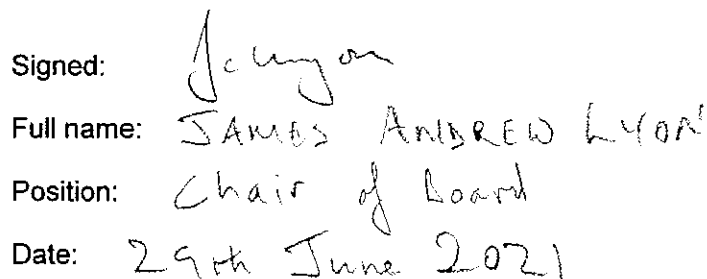 Signed:
Full name: JAMES ANDREW LYON
Position: Chair of Board
Date: 29th June 2021